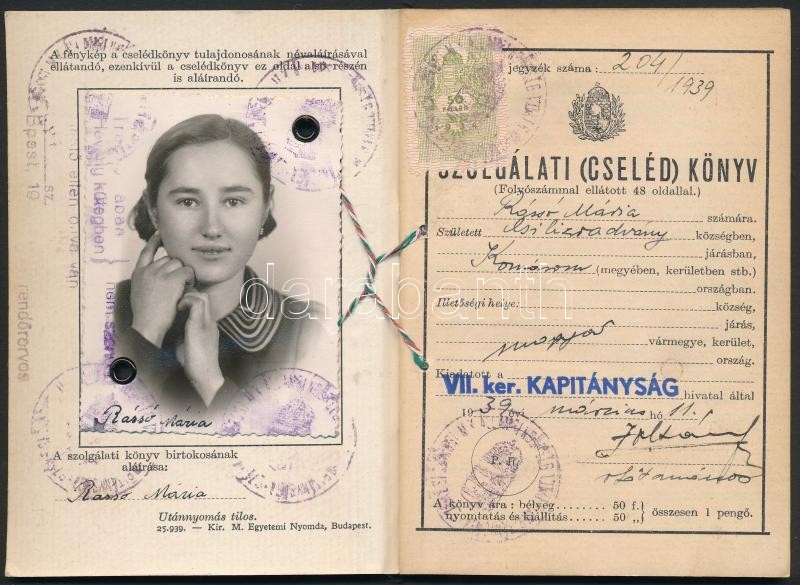 A fénykép a cselédkönyv tulajdonosának névaláírásával
ellátandó, ezenkívül a cselédkönyv ez oldal alsó részén
is aláírandó.
Rássó Mária
A szolgálati könyv birtokosának
aláírása:
Rassó Maria
Utánnyomás tilos.
25.939. — Kir. M. Egyetemi Nyomda, Budapest.
rendőrorvos
Bpest, 19
jegyzék száma: 204/
1939
SZOLGÁLATI (CSELÉD) KÖNYV
(Folyószámmal ellátott 48 oldallal.)
Rássó Mária számára.
Született Csilizradvány községben,
járásban,
Komárom (megyében, kerületben stb.)
országban.
Illetőségi helye: község,
járás,
magyar vármegye, kerület,
ország.
Kiadatott a
VII. ker. KAPITÁNYSÁG
hivatal által
1939 évi március hó 11.
P. H.
A könyv ára: bélyeg 50 f.
nyomtatás és kiállítás 50 „
összesen 1 pengő.
darabanth